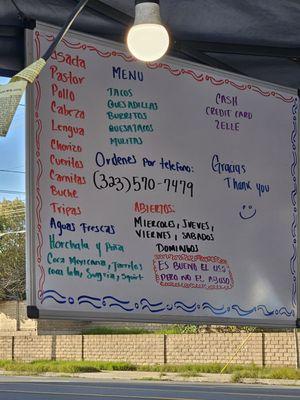 Asada
Pastor
Pollo
Cabeza
Lengua
Chorizo
Cueritos
Carnitas
Buche
Tripas
MENU
TACOS
QUESADILLAS
BURRITOS
QUESATACOS
MULITAS
CASH
CREDIT CARD
ZELLE
Ordenes por telefono:
(323) 570-7479
Gracias
Thank you
Aguas Frescas
Horchata y Piña
Coca Mexicana, Jarritos
coca lata, Sangria, Squirt
ABIERTOS:
MIERCOLES, JUEVES,
VIERNES, SABADOS
DOMINGOS
ES BUENO EL USO
PERO NO EL ABUSO